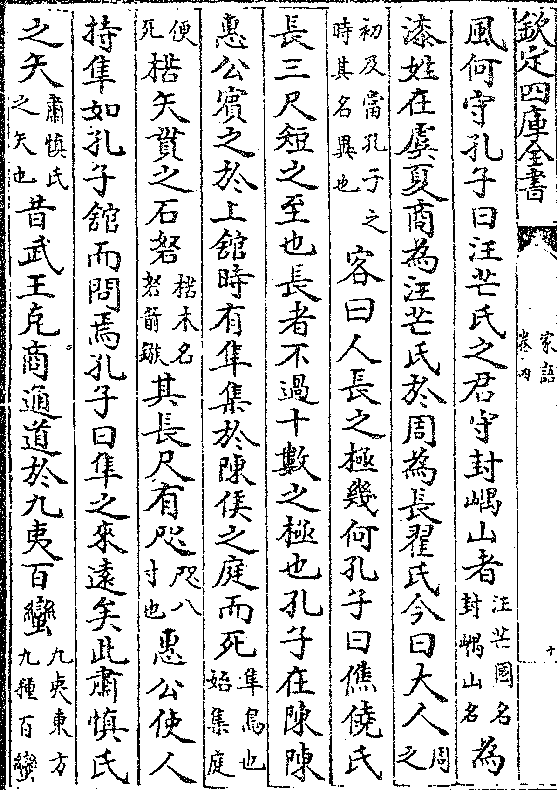 欽定四庫全書
家語
卷四
十
風何守孔子曰汪芒氏之君守封嵎山者汪芒國名封嵎山名為
漆姓在虞夏商為汪芒氏於周為長翟氏今曰大人周之
初及當孔子之時其名異也客曰人長之極幾何孔子曰僬僥氏
長三尺短之至也長者不過十數之極也孔子在陳陳
惠公賓之於上舘時有隼集於陳侯之庭而死隼鳥也始集庭
便死楛矢貫之石砮楛木名砮箭鏃其長尺有咫咫八寸也惠公使人
持隼如孔子舘而問焉孔子曰隼之來遠矣此肅慎氏
之矢肅慎氏之矢也昔武王克商通道於九夷百蠻九夷東方九種百蠻